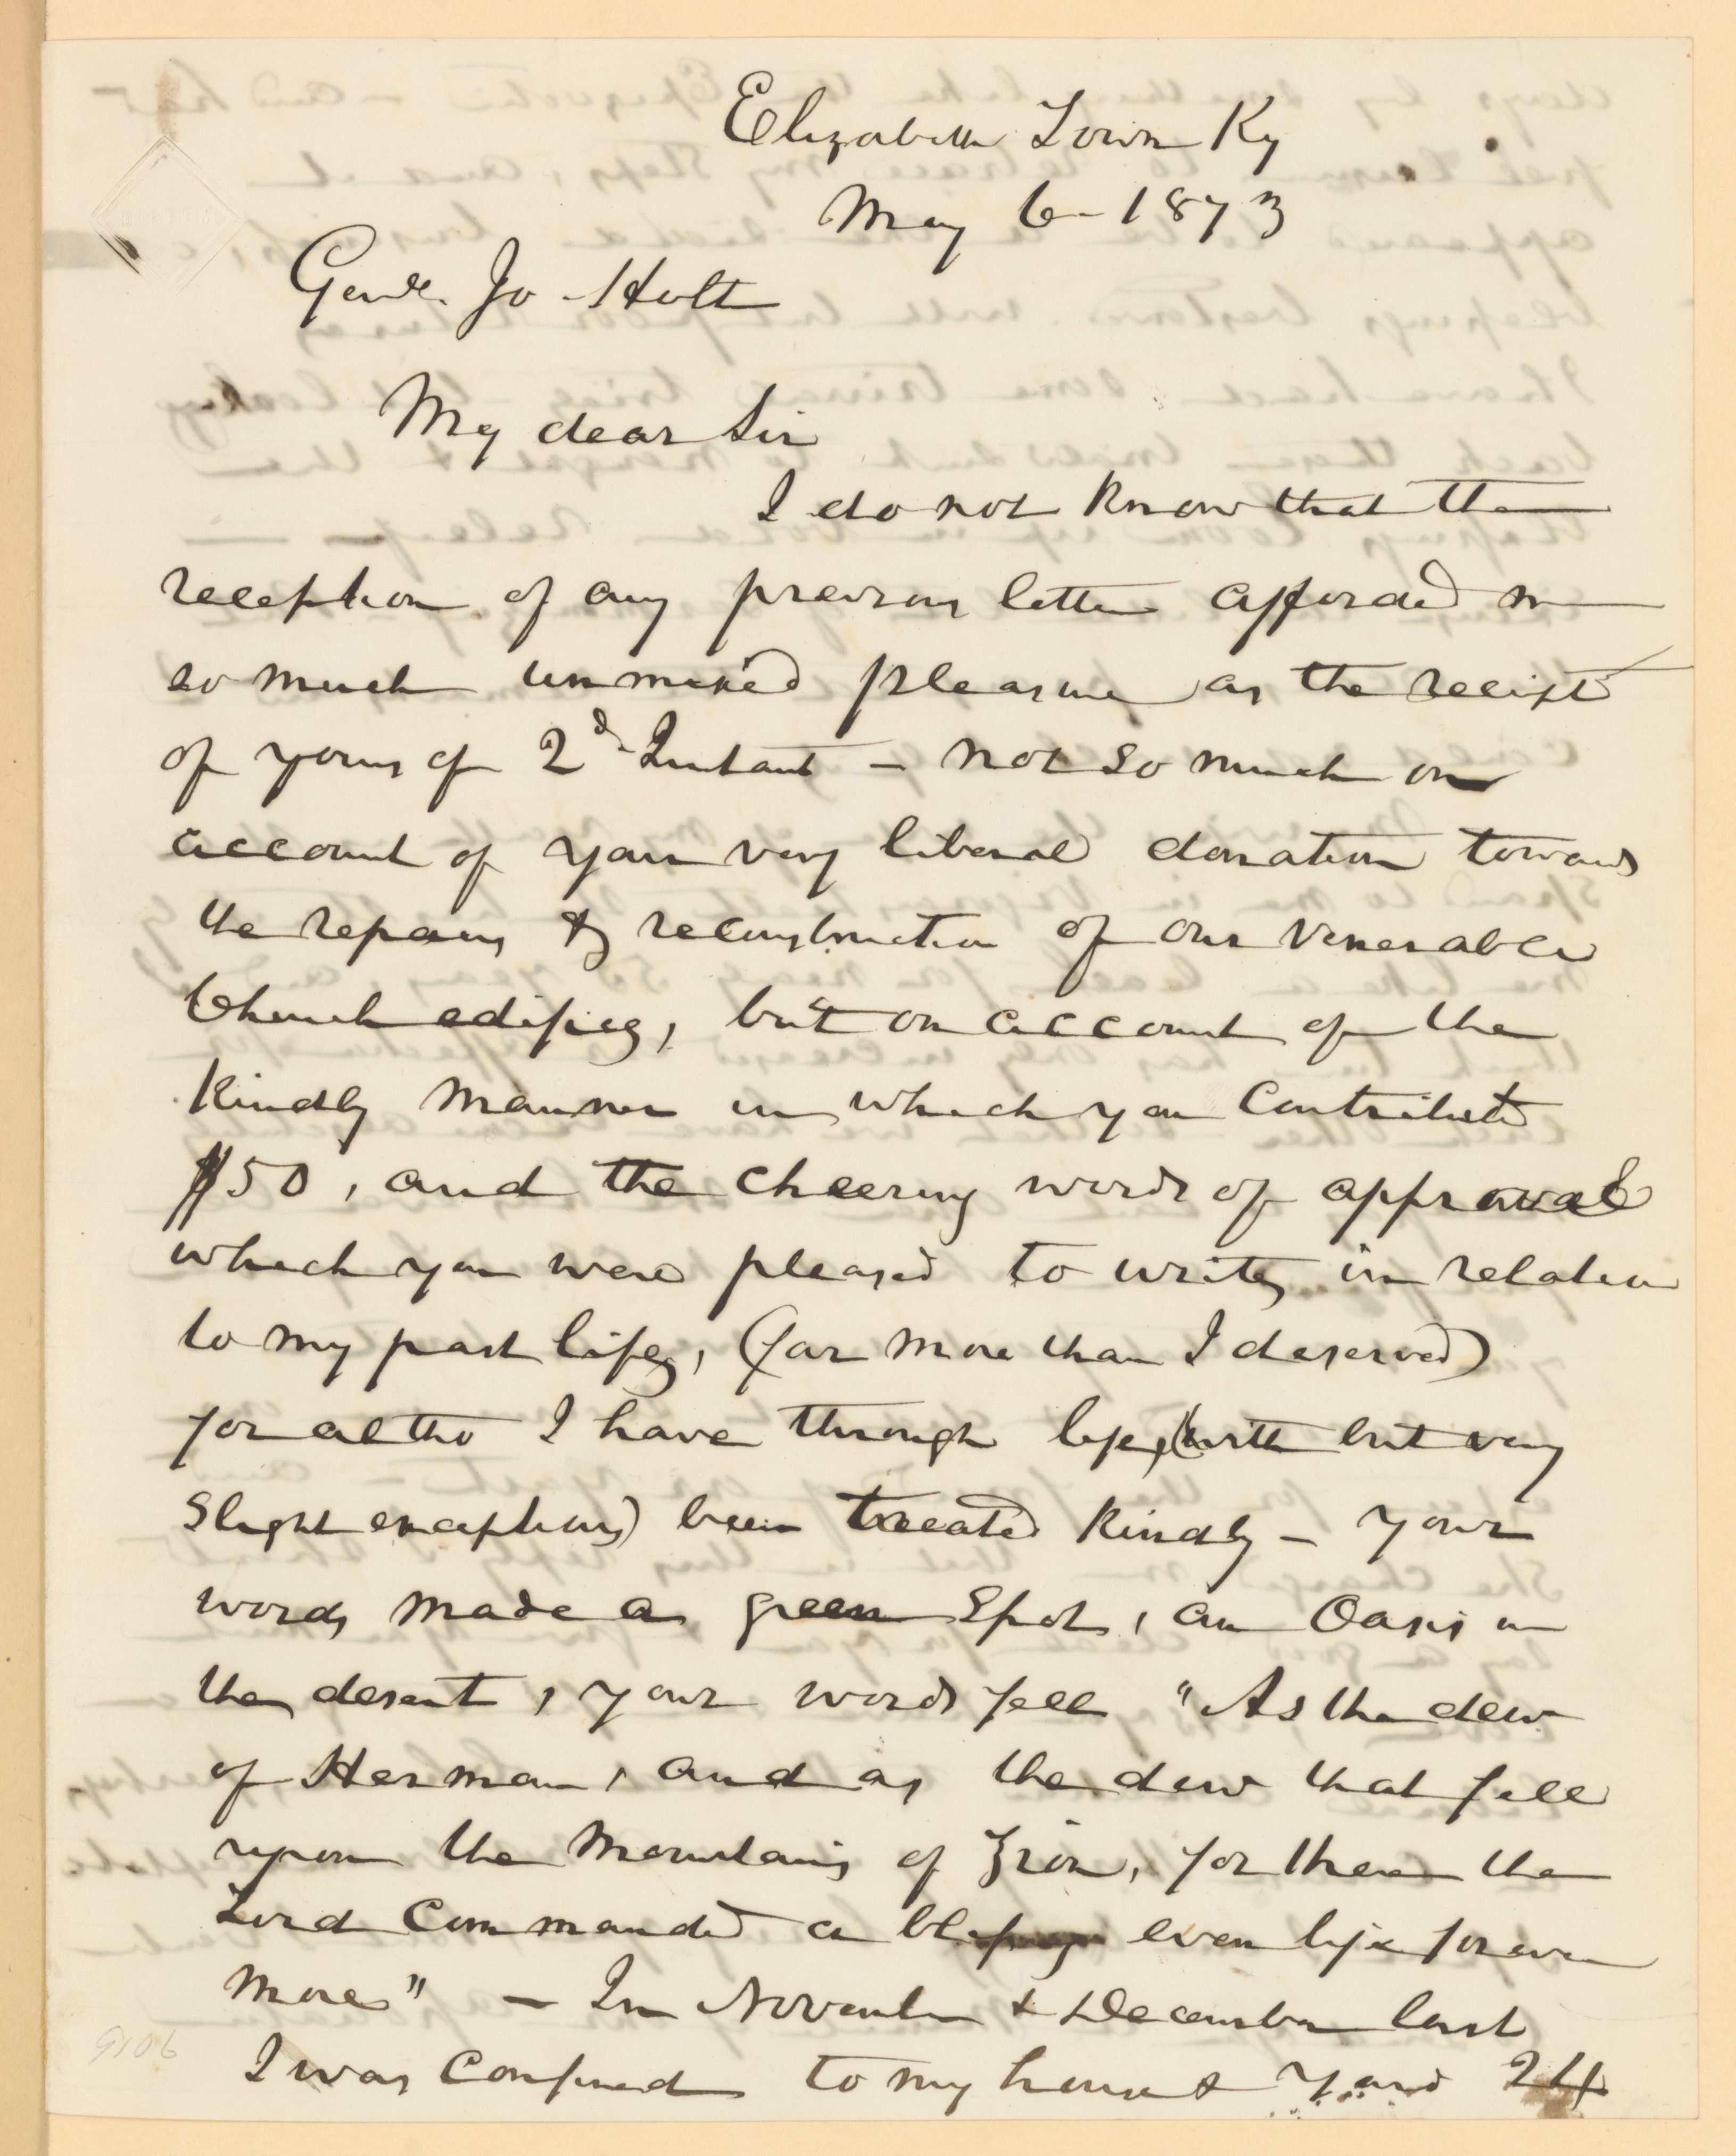 Elizabeth Town Ky
May 6 - 1873
Genl. Jo Holt
My dear Sir
I do not know that the
reception of any previous letter afforded me
so much unmixed pleasure as the receipt
of yours of 2d Instant - not so much on
account of your very liberal donation towards
the repairs & reconstruction of our venerable
Church edifice, but on account of the
kindly manner in which you contribute
$50, and the cheering words of approval
which you were pleased to write, in relation
to my past life, (far more than I deserved)
for altho I have through life, (with but very
slight exceptions) been treated kindly - your
words made a green spot, an Oasis in
the desert, your words fell "As the dew
of Hermon, and as the dew that fell
upon the Mountains of Zion, for there the
Lord commanded a blessing even life forever
more" - In November & December last
I was confined to my house & yard 24
9106